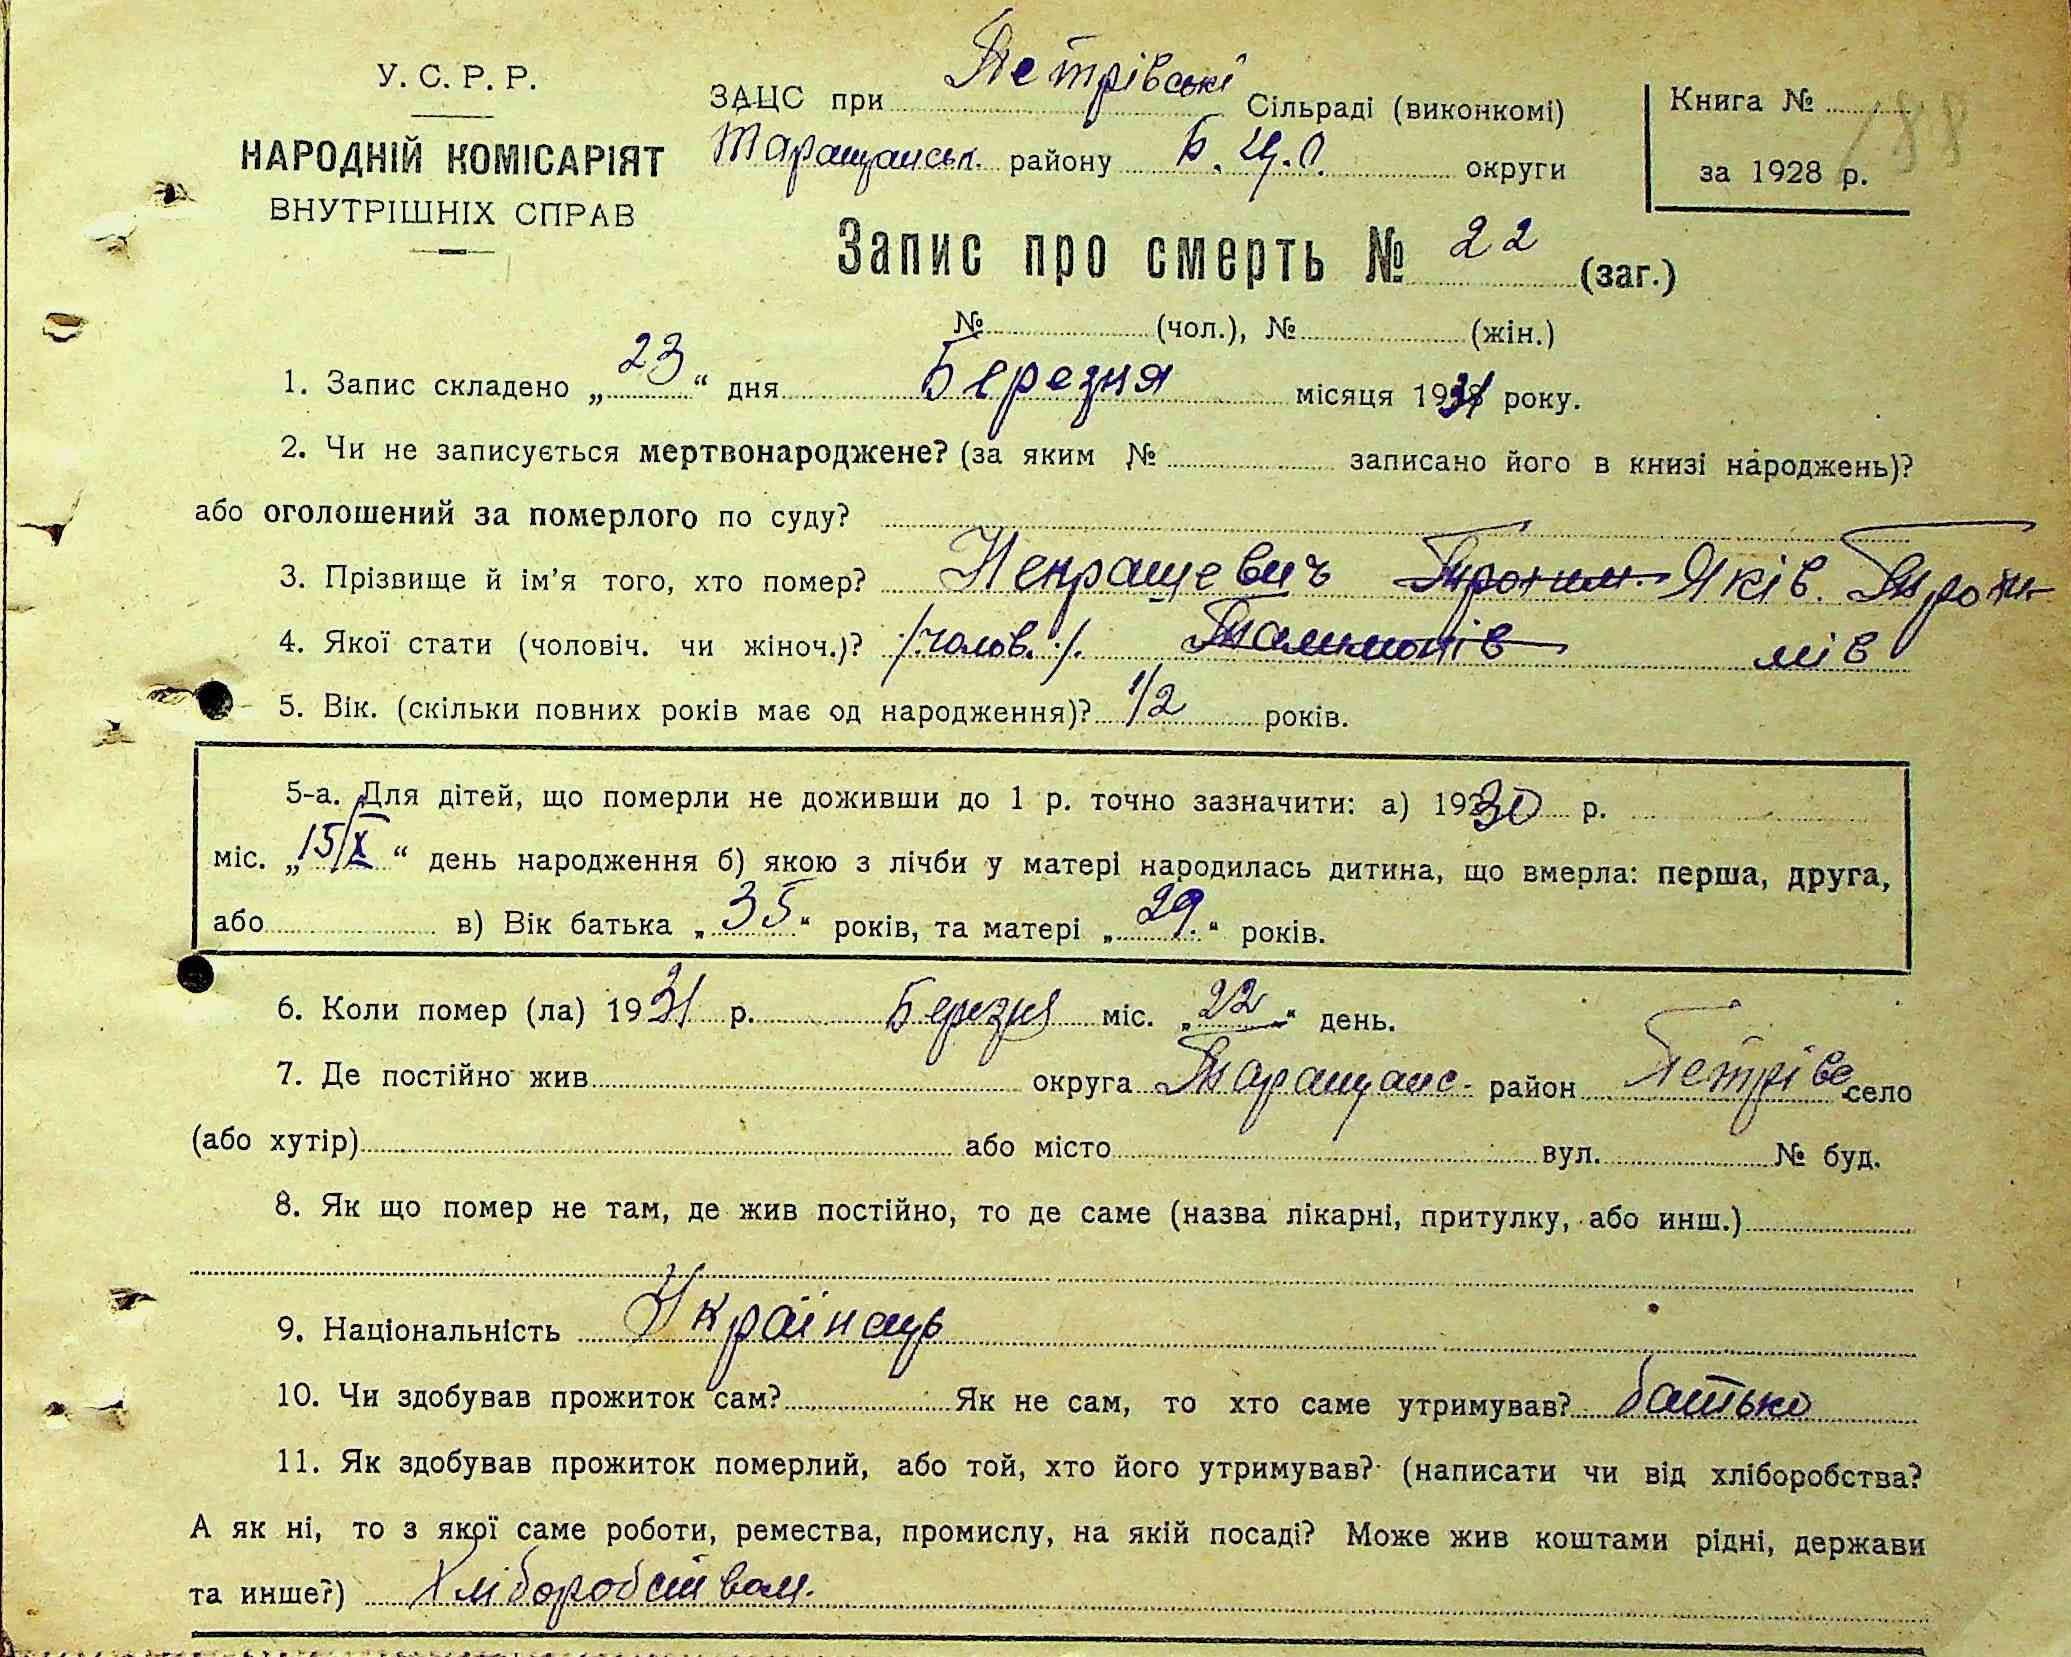 У. С. Р. Р.
НАРОДНІЙ КОМІСАРІЯТ
ВНУТРІШНІХ СПРАВ
ЗАЦС при Петрівські Сільраді (виконкомі)
Таращанськ. району Б. Ц. О. округи
Книга № 188
за 1928 р.
Запис про смерть № 22 (заг.)
№ (чол.), № (жін.)
1. Запис складено „23“ дня Березня місяця 1931 року.
2. Чи не записується мертвонароджене? (за яким № записано його в книзі народжень)?
або оголошений за померлого по суду?
3. Прізвище й ім’я того, хто помер? Некращевич Трохим. Яків. Трохи-
4. Якої стати (чоловіч. чи жіноч.)? /чолов./. мів
5. Вік. (скільки повних років має од народження)? 1/2 років.
5-а. Для дітей, що померли не доживши до 1 р. точно зазначити: а) 1930 р.
міс. „15/X“ день народження б) якою з лічби у матері народилась дитина, що вмерла: перша, друга,
або в) Вік батька „35“ років, та матері „29.“ років.
6. Коли помер (ла) 1931 р. Березня міс. „22“ день.
7. Де постійно жив округа Таращанс- район Петріве село
(або хутір) або місто вул. № буд.
8. Як що помер не там, де жив постійно, то де саме (назва лікарні, притулку, або инш.)
9. Національність Українець
10. Чи здобував прожиток сам? Як не сам, то хто саме утримував? батько
11. Як здобував прожиток померлий, або той, хто його утримував? (написати чи від хліборобства?
А як ні, то з якої саме роботи, ремества, промислу, на якій посаді? Може жив коштами рідні, держави
та инше?) Хліборобством.